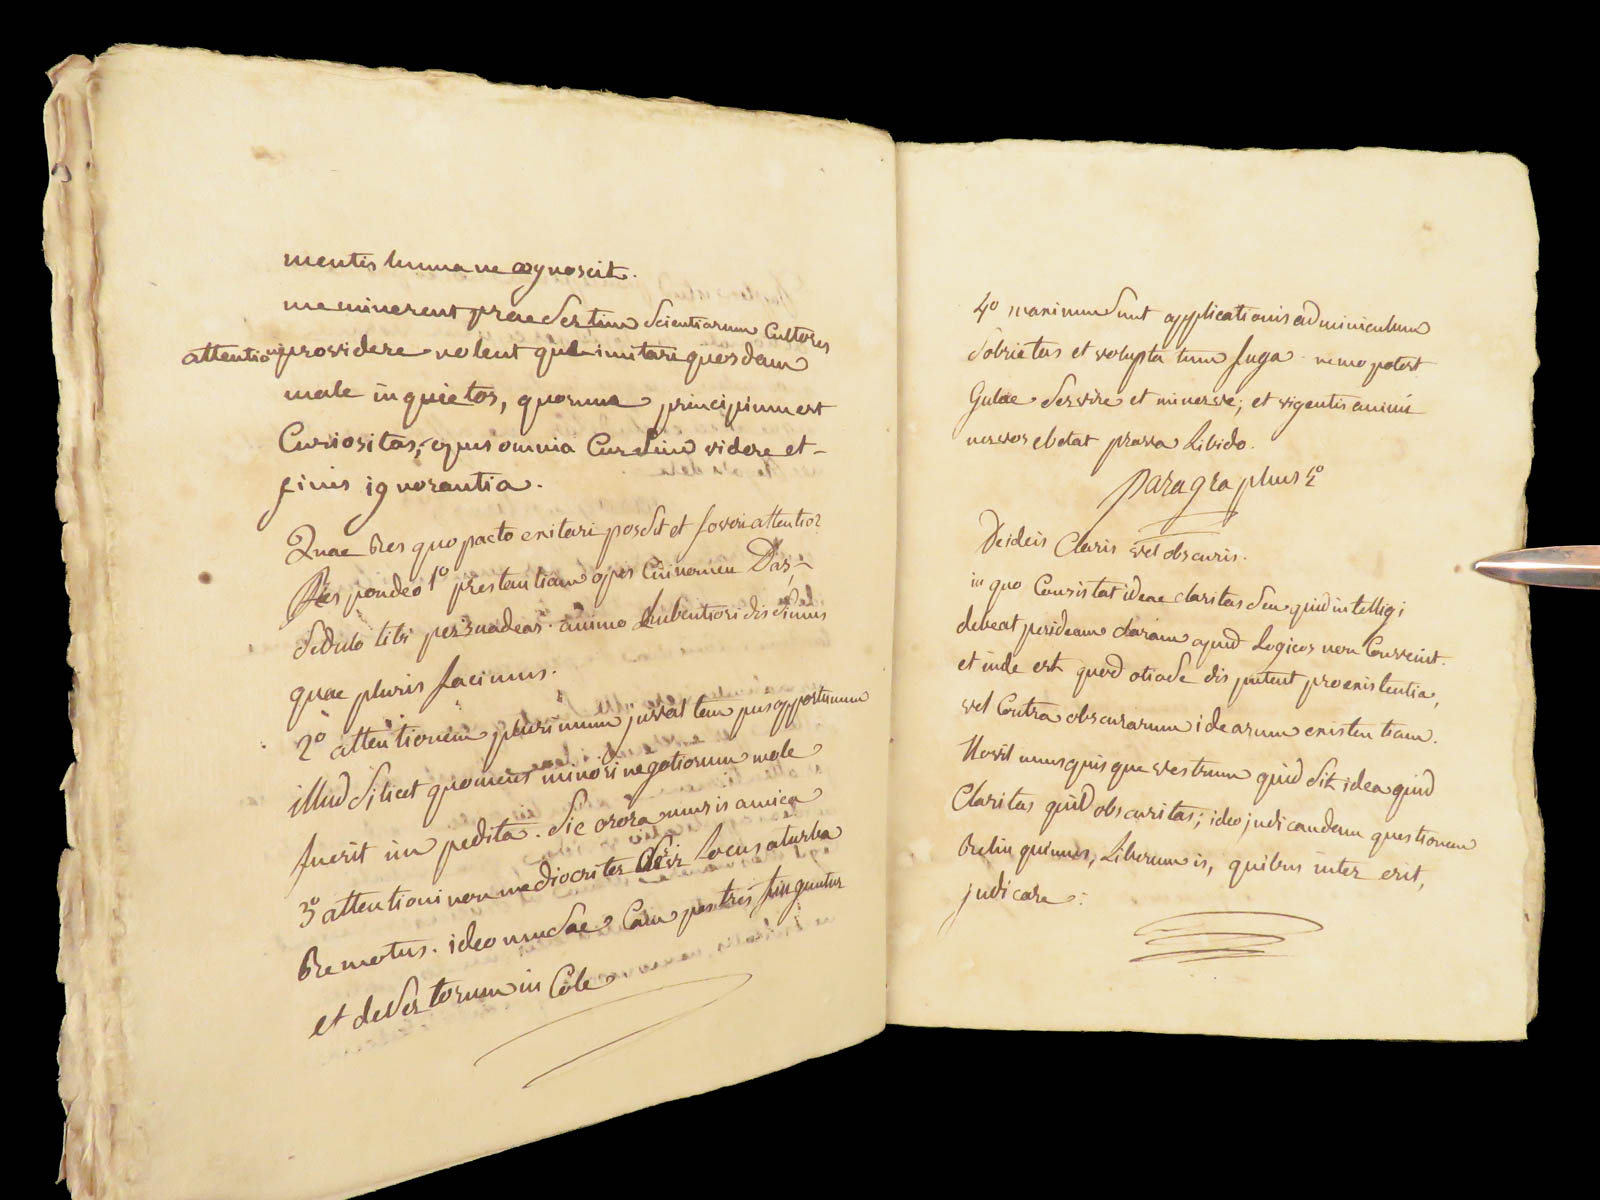 mentis humanae cognoscit.
meminerent praesertim scientiarum cultores
attentioni providere nolent qui imitari quosdam
male inquietos, quorum principium est
Curiositas, opus omnia cursim videre et
finis ignorantia.
Quae Res quo pacto excitari possit et foveri attentio?
Respondeo 1º prestantiam operis cui nomen Das,
sedulo tibi persuadeas. animo Lubentiori discimus
quae pluris facimus.
2º attentionem plurimum juvat tempus opportunum
illud silicet quo mens minori negotiorum mole
fuerit impedita. sic orora musis amica
3º attentioni non mediocriter Locus a turba
Remotus. ideo musae pastres finguntur
et desertorum in Cole
4º maximum sunt applicationis adminiculum
sobrietas et voluptatum fuga. nemo potest
Gulae servire et minervae; et vigentis animi
nervos ebetat prava Libido.
paragraphus 2º
De ideis Claris vel obscuris.
in quo Consistat ideae claritas seu quid intelligi
debeat per ideam claram apud Logicos non Convenit.
et inde est quod otiose disputent pro existentia,
vel Contra obscurarum idearum existentiam.
Novit unusquisque vestrum quid sit idea quid
Claritas quid obscuritas; ideo judicandam questionem
Relinquimus, Liberum is, quibus inter erit,
judicare.